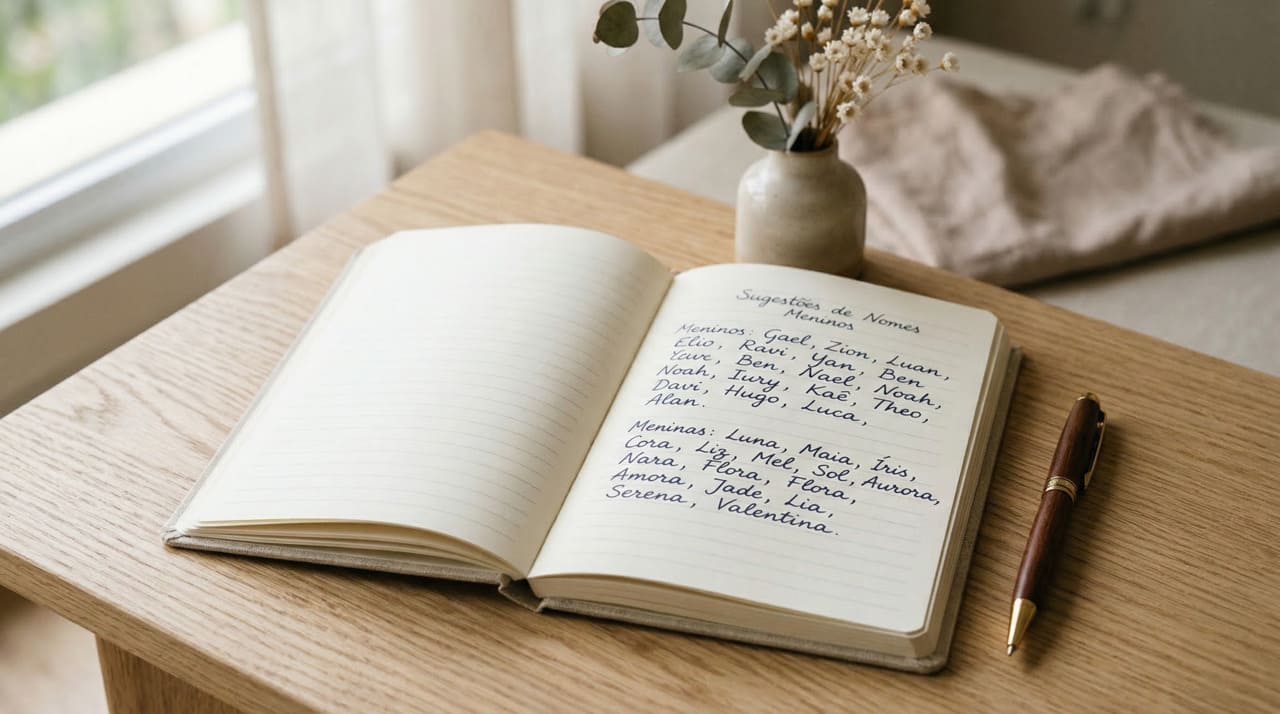 Sugestões de Nomes
Meninos
Meninos: Gael, Zion, Luan,
Elio, Ravi, Yan, Ben
Ben, Nael, Noah,
Noah, Iury, Kaē, Theo,
Davi, Hugo, Luca,
Alan.
Meninas: Luna, Maia, Íris,
Cora, Liz, Mel, Sol, Aurora,
Nara, Flora, Flora,
Amora, Jade, Lia,
Serena, Valentina.